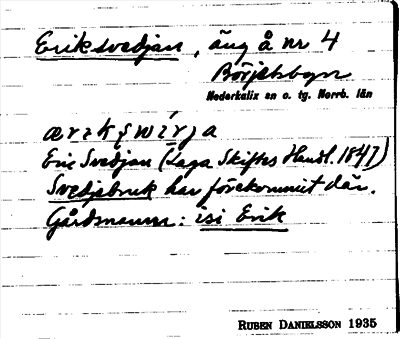 Eriksvedjan, äng å nr 4
Börjelsbyn
Nederkalix sn o. tg. Norrb. län
Eric Svedjan (Laga Skiftes Handl. 1847)
Svedjebruk har förekommit där.
Gårdsnamn: isi Erik
RUBEN DANIELSSON 1935